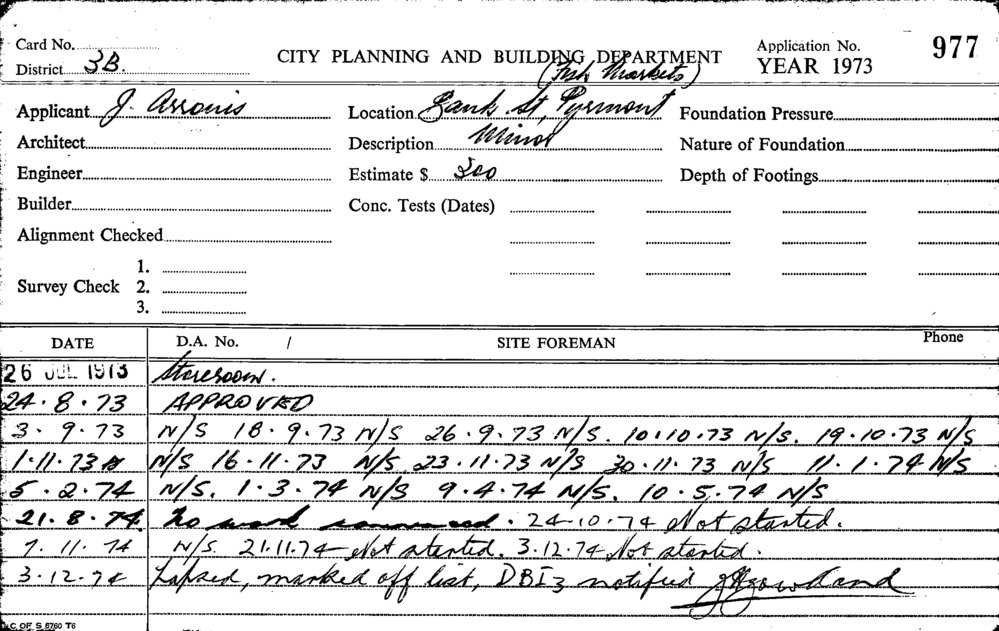 Card No.
District 3B.
CITY PLANNING AND BUILDING DEPARTMENT
Application No. 977
YEAR 1973
(Fish Markets)
Applicant J. Arronis
Location Bank St, Pyrmont
Foundation Pressure
Architect
Description Minor
Nature of Foundation
Engineer
Estimate $ 200
Depth of Footings
Builder
Conc. Tests (Dates)
Alignment Checked
Survey Check 1.
2.
3.
DATE D.A. No. / SITE FOREMAN Phone
26 JUL 1973 Storeroom.
24.8.73 APPROVED
3.9.73 N/S 18.9.73 N/S 26.9.73 N/S. 10.10.73 N/S. 19.10.73 N/S
1.11.73 N/S 16.11.73 N/S 23.11.73 N/S 30.11.73 N/S 11.1.74 N/S.
5.2.74 N/S. 1.3.74 N/S 9.4.74 N/S. 10.5.74 N/S
21.8.74. No work commenced. 24-10-74 Not started.
7.11.74 N/S. 21.11.74 Not started. 3.12.74 Not started.
3.12.74 Lapsed, marked off list, DBI3 notified
C. OF S 5760 T6